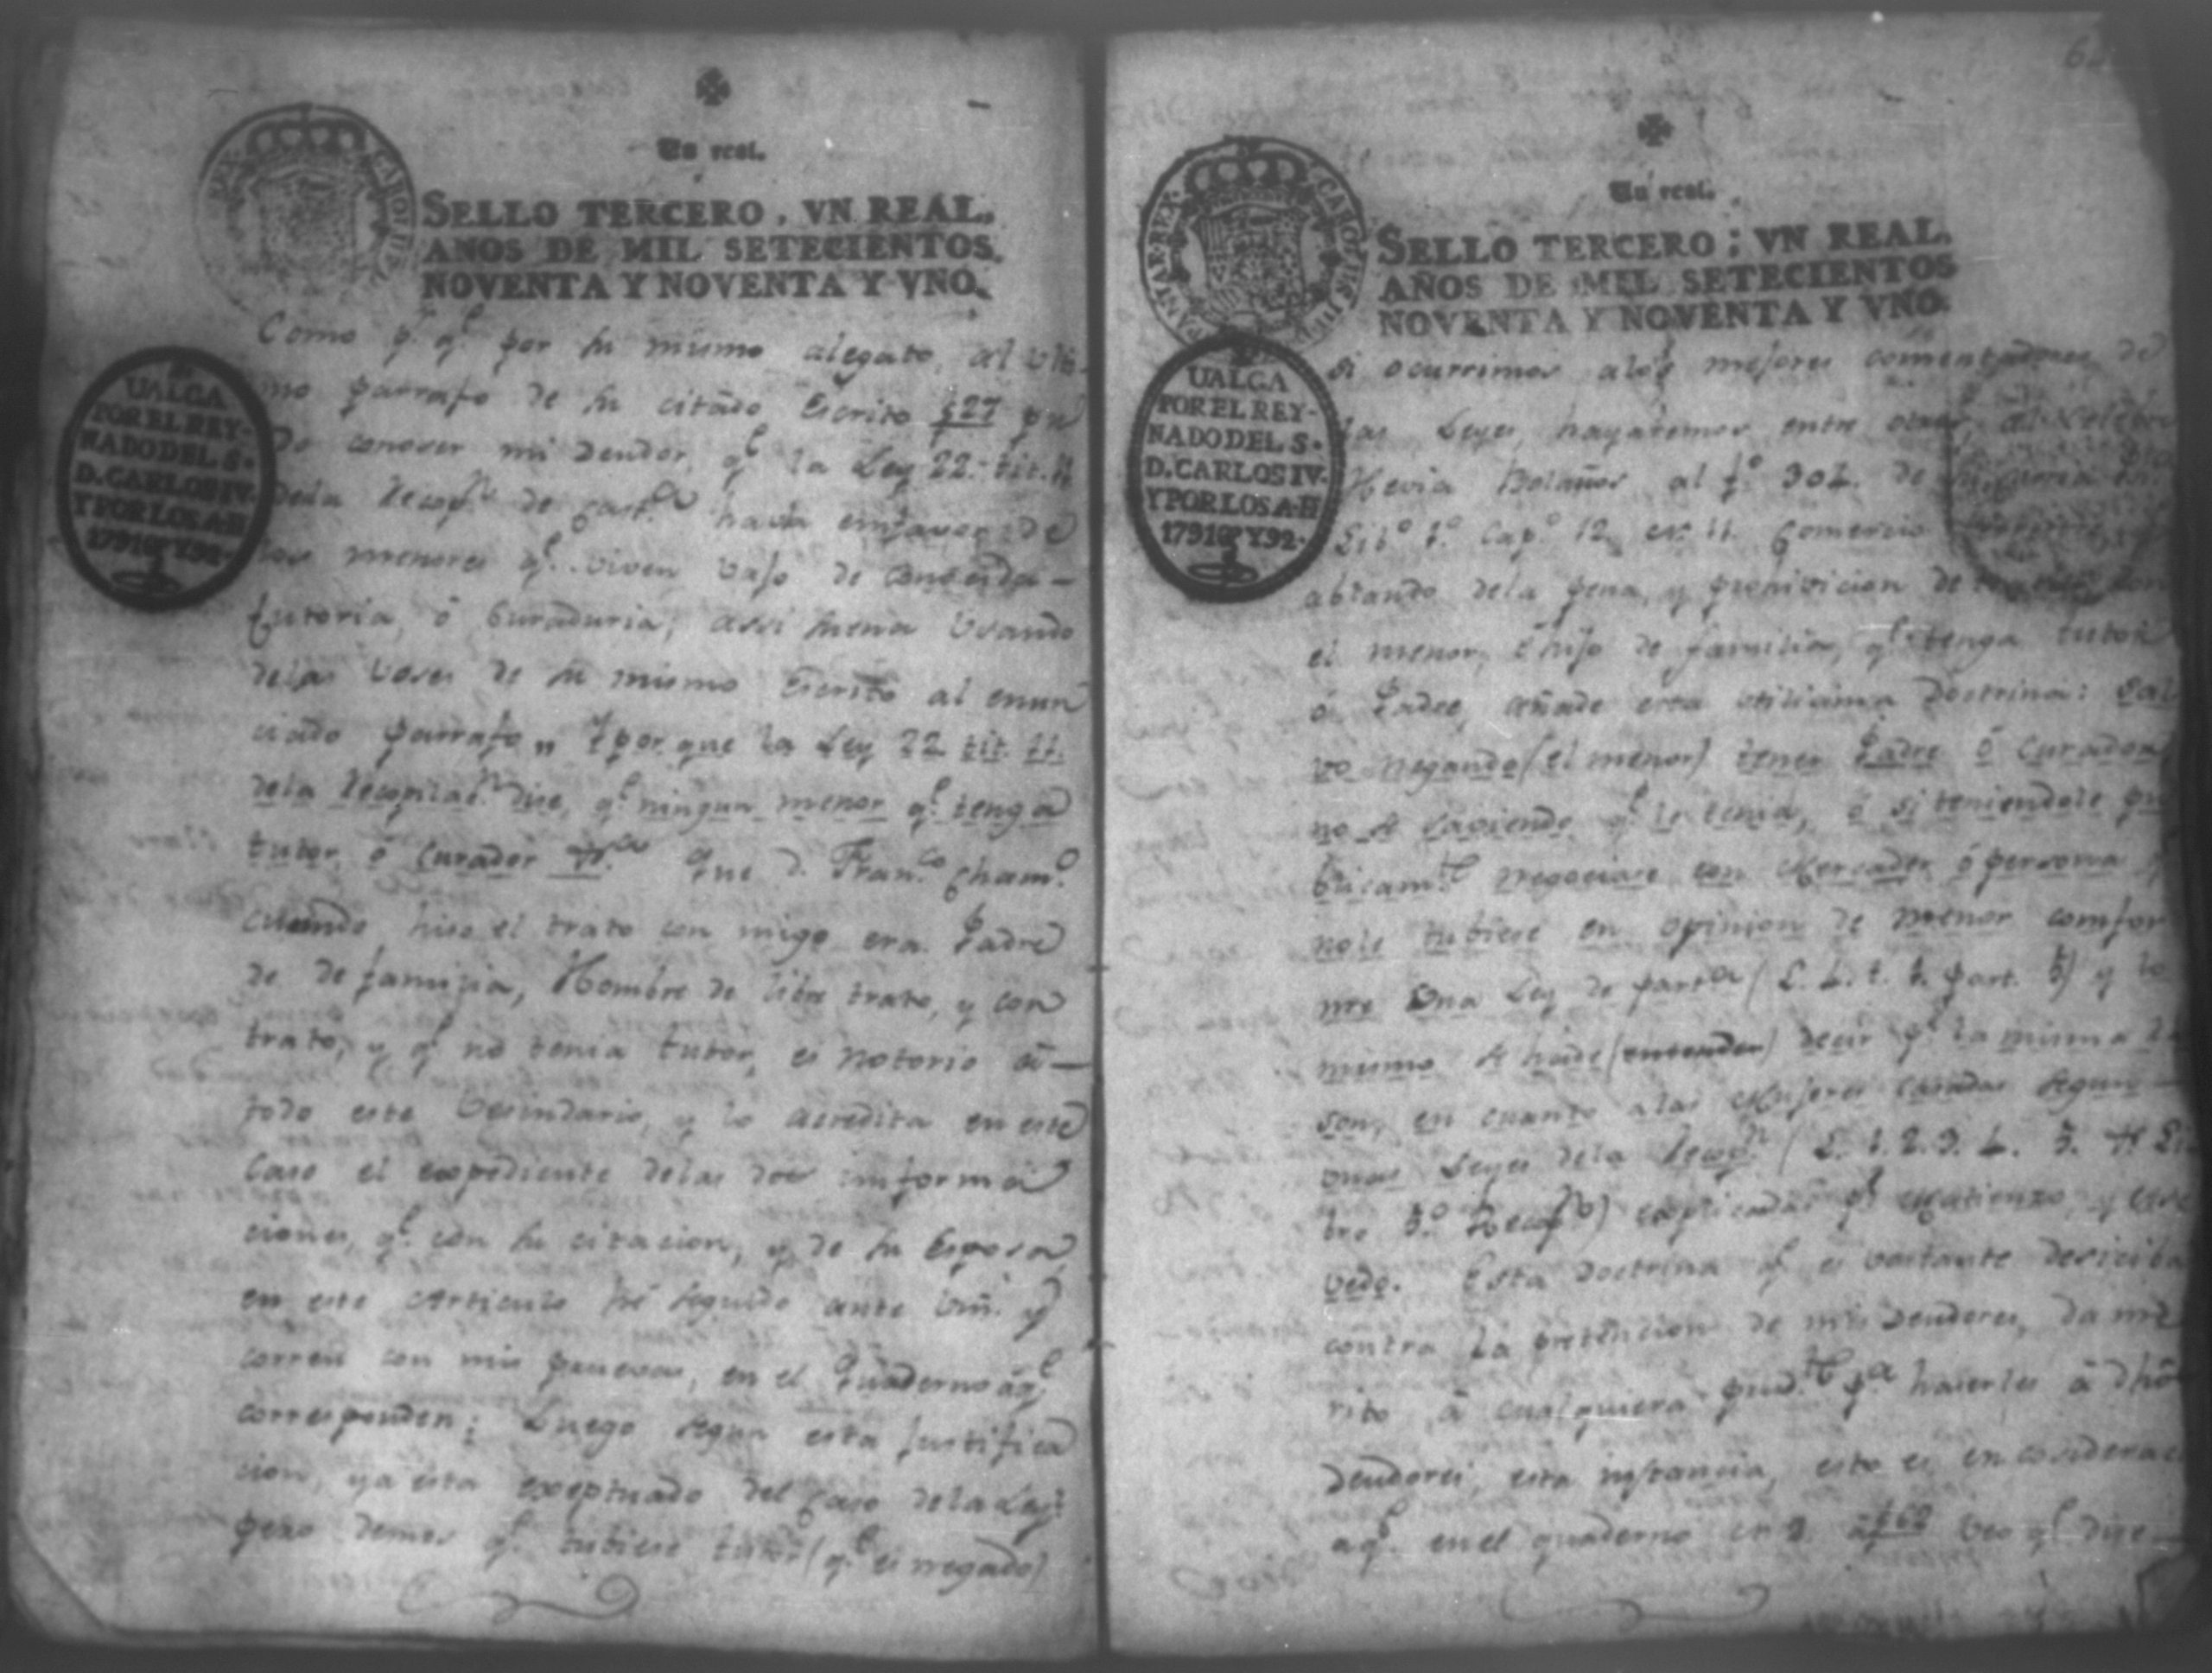 Un real.
SELLO TERCERO, VN REAL,
AÑOS DE MIL SETECIENTOS
NOVENTA Y NOVENTA Y VNO.
CAROLUS III
REX
UALGA
POR EL REY-
NADO DEL S.
D. CARLOS IV.
Y POR LOS A-H
1791 Y 92.
Como q.e por su mismo alegato, al ulti
mo parrafo de su citado Escrito f 27 pu
do conoser mi deudor, q.e la Ley 22. tit. 11
dela Recop.n de Cast.a havla en favor de
los menores q.e viven vajo de conosida
tutoria, ó curaduria; assi suena usando
delas voses de su mismo Escrito al enun
ciado parrafo „ Y por que la Ley 22 tit. 11.
dela Recopilac.n dise, q.e ningun menor q.e tenga
tutor, ó curador
Que D. Fran.co Cham.o
cuando hiso el trato con migo era Padre
de de familia, Hombre de libre trato, y con
trato, y q.e no tenia tutor, es notorio á
todo este vesindario, y lo acredita en este
caso el expediente delas dos informa
ciones, q.e con su citacion, y de su Esposa
en este articulo hé seguido ante Vm. y
corren con mis pruevas, en el quaderno áq.e
corresponden; Luego segun esta justifica
cion, ya esta exeptuado del Caso dela Ley:
pero demos q.e tubiese tutor (q.e es negado)
Un real.
SELLO TERCERO; VN REAL.
AÑOS DE MIL SETECIENTOS
NOVENTA Y NOVENTA Y VNO.
CAROLUS III
REX
UALGA
POR EL REY-
NADO DEL S.
D. CARLOS IV.
Y POR LOS A-H
1791 Y 92.
si ocurrimos alos mejores comentadores de
las Leyes, hayaremos entre otros, al
Hevia Bolaños al f.o 304. de
Lib.o 1.o Cap.o 12 Comercio
ablando dela pena, y prohivicion de
el menor, ó hijo de familia, q.e tenga tutor
ó Padre, añade esta utilisima doctrina: Sal
vo negando (el menor) tener Padre ó curador
no se saviendo q.e le tenia, ó si teniendole pu
blicam.te negociase con Mercader ó persona q
nole tubiese en opinion de menor comfor
me una Ley de part.a (L. 4. t. 1. part. 5) y lo
mismo se hade (entender) decir q.e la misma
son, en cuanto alas Mujeres casadas segun
unas Leyes dela Recop.n (L. 1. 2. 3. 4. 5.
bro 5.o Recop.n) explicadas p.r Matienzo, y Ase
vedo. Esta doctrina q.e es vastante desiciba
contra la pretencion de mis Deudores, da mé
rito á cualquiera prud.te p.a haserles á dhõ
deudores, esta instancia, esto es en cosiderac
aq.e en el quaderno af 62 veo q.e dise